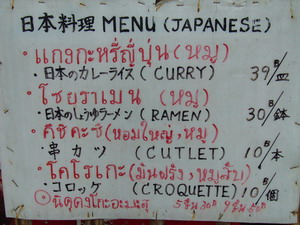 日本料理 MENU (JAPANESE)
・แกงกะหรี่ญี่ปุ่น (หมู)
・日本のカレーライス (CURRY) 39฿/皿
・โชยุราเมน (หมู)
・日本のしょうゆラーメン (RAMEN) 30฿/鉢
・คิชิคะซึ (หอมใหญ่, หมู)
・串カツ (CUTLET) 10฿/本
・โคโรเกะ (มันฝรั่ง, หมูสับ)
・コロッケ (CROQUETTE) 10฿/個
5 ชิ้น